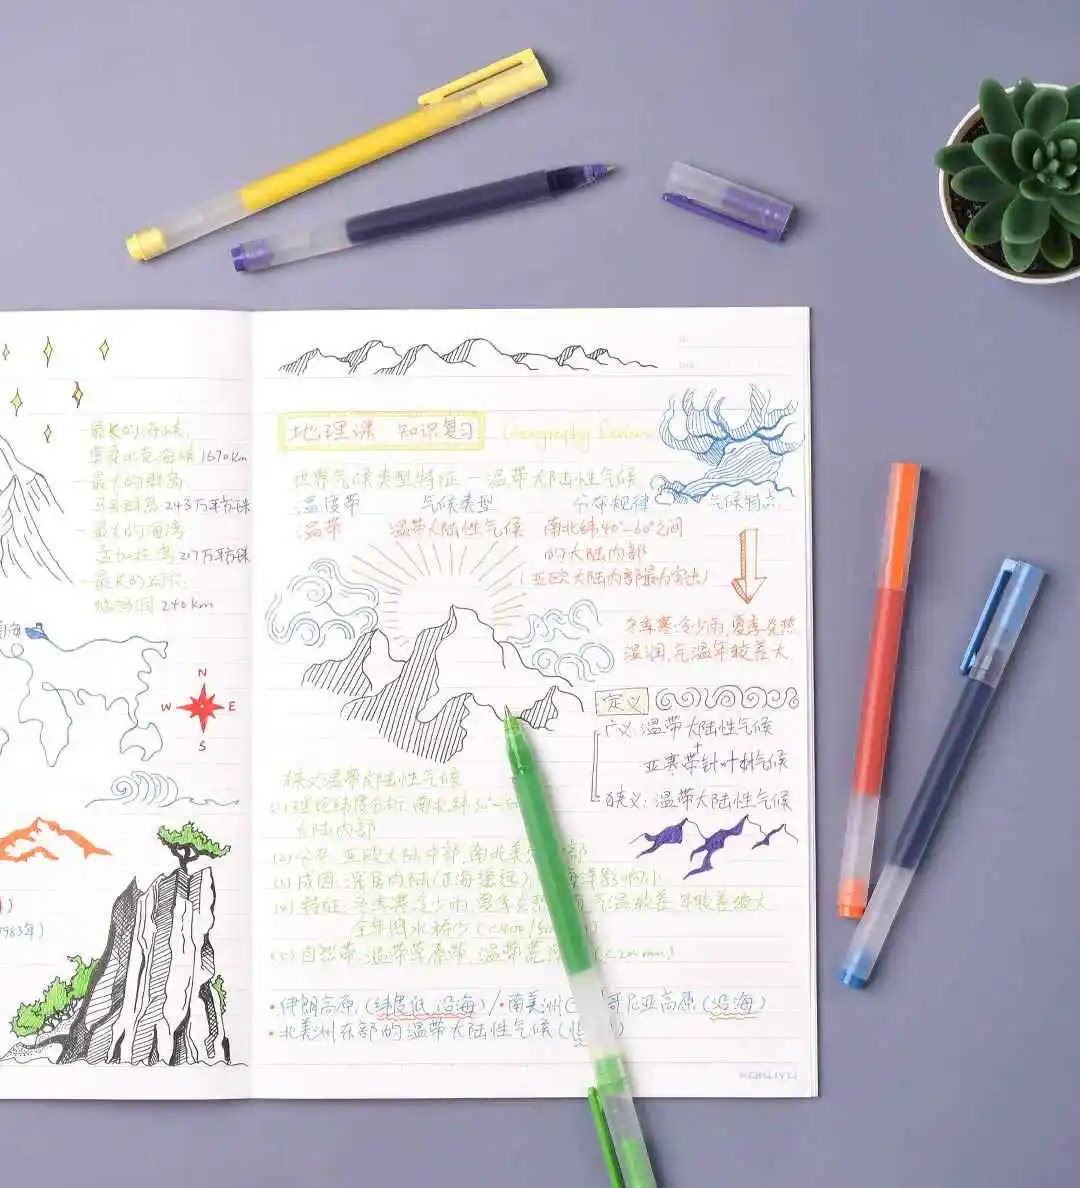 最长的海峡
莫桑比克海峡 1670km
最大的群岛
马来群岛 243万平方
最大的海湾
孟加拉湾 217万平方
最长的
240km
海
N
W E
S
983年)
地理课 知识复习
Geography Review
世界气候类型特征—温带大陆性气候
温度带 气候类型 分布规律 气候特点
温带 温带大陆性气候 南北纬40°-60°之间
的大陆内部
(亚欧大陆内部最为突出)
冬季寒冷少雨,夏季炎热
湿润,气温年较差大
定义
广义:温带大陆性气候
+
亚寒带针叶林气候
狭义:温带大陆性气候
狭义温带大陆性气候
大陆内部
(2)分布:亚欧大陆中部,南北美
(3)成因:深居内陆(距海遥远),海洋影响小
(4)特征:冬季寒冷少雨,夏季 气温较差
全年降水稀少
(5)自然带:温带草原带、温带荒
•伊朗高原(纬度低 沿海)/•南美洲 哥尼亚高原(沿海)
•北美洲东部的温带大陆性气候(
KOKUYO